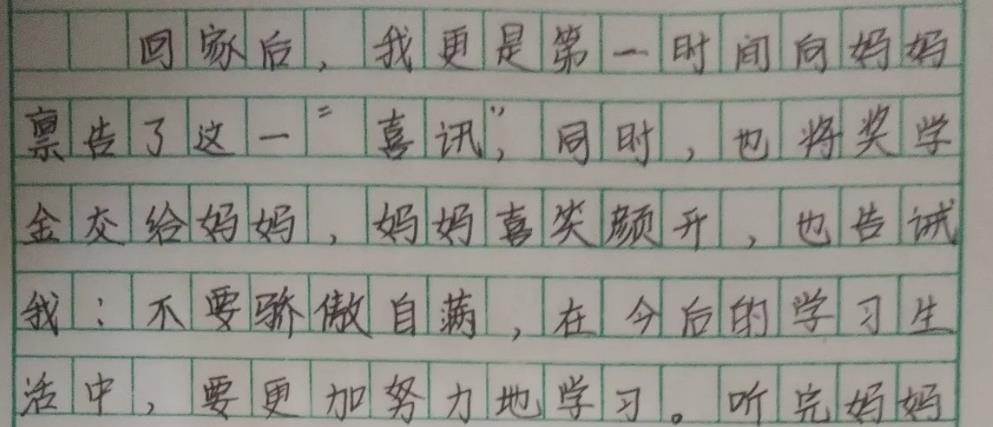 回家后，我更是第一时间向妈妈
禀告了这一“喜讯”，同时，也将奖学
金交给妈妈，妈妈喜笑颜开，也告诫
我：不要骄傲自满，在今后的学习生
活中，要更加努力地学习。听完妈妈